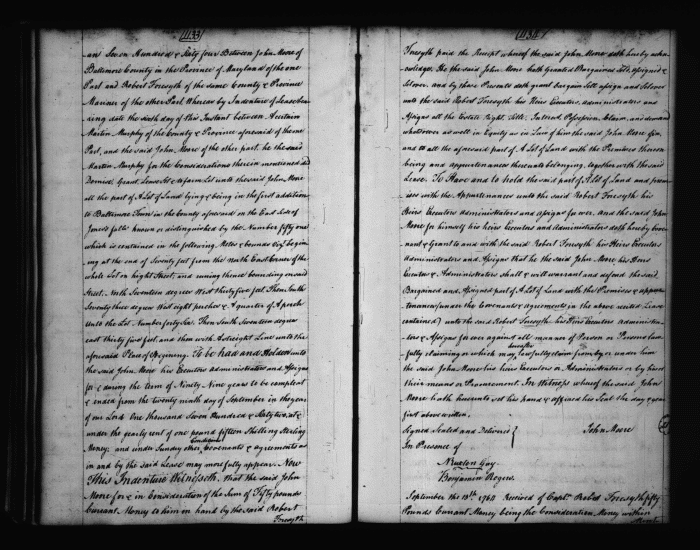 433
an Seven Hundred & Sixty four Between John Moore of
Baltimore County in the Province of Maryland of the one
Part and Robert Forsyth of the same County & Province
Mariner of the other Part Whereas by Indenture of Lease bea
ding date the sixth day of this Instant between a certain
Martin Murphy of the County & Province aforesaid of the one
Part, and the said John Moore of the other part he the said
Martin Murphy for the Considerations therein mentioned did
Demise Grant Lease Set & to farm Let unto the said John Moore
all the part of A Lot of Land lying & being in the first addition
to Baltimore Town in the County aforesaid on the East Side of
Jones's falls known or distinguished by the Number fifty one
which is contained in the following Metes & bounds Viz begin
ing at the end of Seventy feet from the North East Corner of the
whole Lot on hight Street, and runing thence bounding on said
Street. North Seventeen degrees West thirty five feet. Then South
Seventy three degrees West eight perches & A quarter of A perch
Untill the Lot Number forty Six Then South Seventeen degrees
east thirty five feet and then with A straight Line unto the
aforesaid Place of Begining. To be had and Holden unto
the said John Moore his Executors administrators and Assigns
for & during the term of Ninety Nine years to be compleat
& ended from the twenty ninth day of September in the year
of our Lord One thousand Seven Hundred & Sixty two, at &
under the yearly rent of one pound fifteen Shilling Sterling
Conditions
Money: and under Sundry other Covenants & agreements as
in and by the said Lease may more fully appear. Now
This Indenture Witnesseth. that the said John
Moore for & in Consideration of the Sum of Fifty pounds
Currant Money to him in hand by the said Robert
Forsyth
434
Forsyth paid the Receipt whereof the said John Moore doth hereby ackn
owledge. He the said John Moore hath Granted Bargained Sold, Assigned &
Setover, and by these Presents doth grant bargain Sell assign and Setover
unto the said Robert Forsyth his Heirs Executors, administrators and
Assigns all the Estate Right, Title, Interest, Possession, Claim, and demand
whatsoever as well in Equity as in Law of him the said John Moore of in,
and to all the aforesaid part of A Lot of Land with the Premises thereon
being and appurtenances thereunto belonging, together with the said
Lease. To Have and to hold the said part of A Lot of Land and prem
ises with the Appurtenances unto the said Robert Forsyth his
Heirs Executors Administrators and Assigns for ever. And the said John
Moore for himself his heirs Executors and Administrators doth hereby Cove
nant & Grant to and with the said Robert Forsyth his Heirs Executors
Administrators and Assigns that he the said John Moore, his Heirs
Executors & Administrators Shall & will warrant and defend the said
Bargained and Assigned part of A Lot of Land with the Premises & appur
tenances (under the Covenants & agreements in the above recited Lease
contained) unto the said Robert Forsyth his Heirs Executors Administra
tors & Assigns for ever against all manner of Person or Persons law
hereafter
fully claiming or which may, lawfully claim from, by or under him
the said John Moore his heirs Executors or Administrators or by his or
their means or Procurement. In Witness whereof the said John
Moore hath hereunto set his hand & affixed his Seal the day & year
first above written.
Signed Sealed and Delivered
John Moore
In Presence of
Guy.
Benjamin Rogers.
September the 1764 Received of Capt. Robert Forsyth fifty
Pounds Currant Money being the Consideration Money within